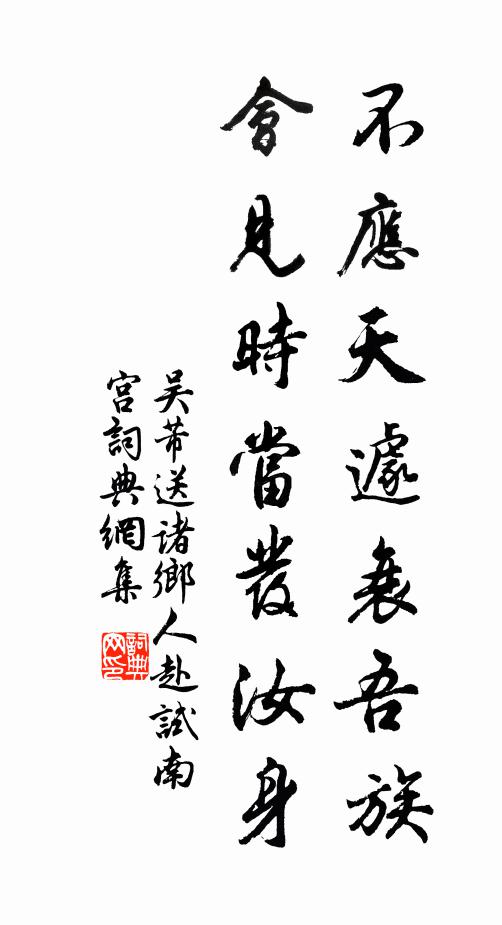 不應天遽衰吾族
會見時當發汝身
吳芾送諸鄉人赴試南
宮詞典網集
詞典
网印